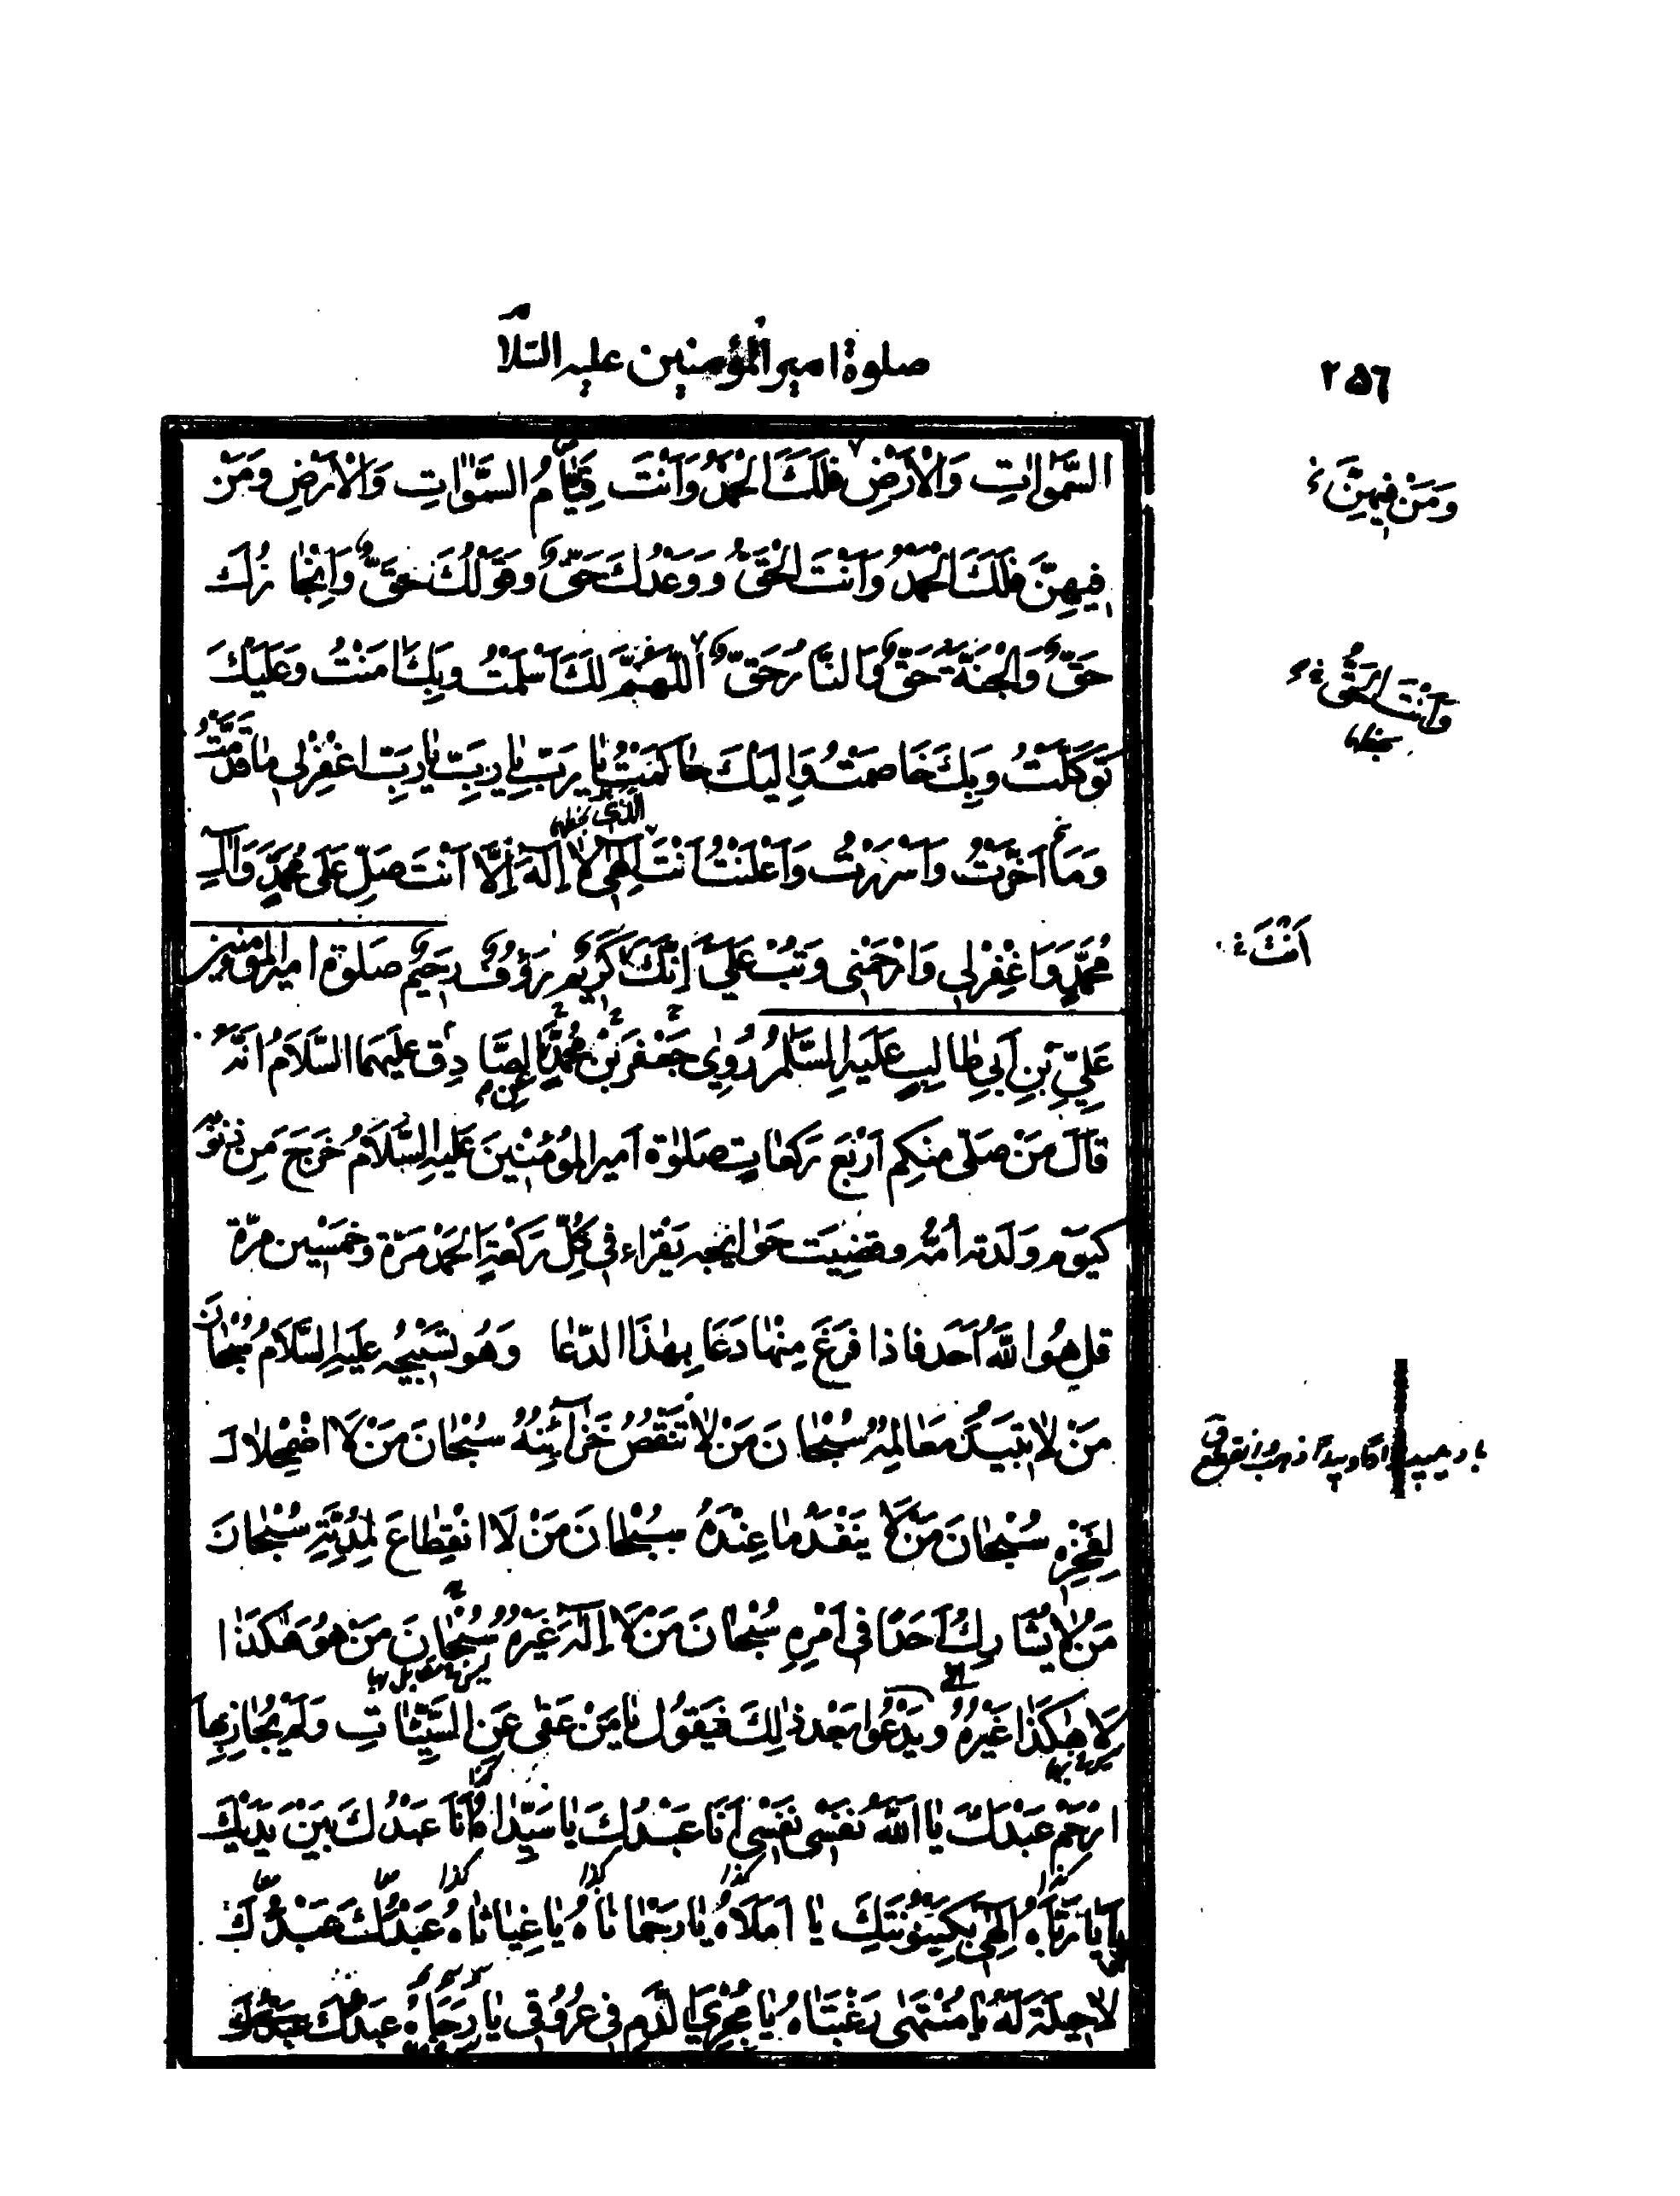 ٢٥٦
صلوة امير المؤمنين عليه السلام
السَّمٰوَاتِ وَالْاَرْضِ فَلَكَ الْحَمْدُ وَاَنْتَ قَيَّامُ السَّمٰوَاتِ وَالْاَرْضِ وَمَنْ
وَمَنْ فِيهِنَّ
فِيهِنَّ فَلَكَ الْحَمْدُ وَاَنْتَ الْحَقُّ وَوَعْدُكَ حَقٌّ وَقَوْلُكَ حَقٌّ وَاِنْجَازُكَ
حَقٌّ وَالْجَنَّةُ حَقٌّ وَالنَّارُ حَقٌّ اَللّٰهُمَّ لَكَ اَسْلَمْتُ وَبِكَ اٰمَنْتُ وَعَلَيْكَ
وَاَنْتَ الْحَقُّ
تَوَكَّلْتُ وَبِكَ خَاصَمْتُ وَاِلَيْكَ حَاكَمْتُ يَا رَبِّ يَا رَبِّ يَا رَبِّ اغْفِرْ لِي مَا قَدَّمْتُ
وَمَا اَخَّرْتُ وَاَسْرَرْتُ وَاَعْلَنْتُ اَنْتَ اِلٰهِي لَا اِلٰهَ اِلَّا اَنْتَ صَلِّ عَلٰى مُحَمَّدٍ وَاٰلِ
الَّذِي
مُحَمَّدٍ وَاغْفِرْ لِي وَارْحَمْنِي وَتُبْ عَلَيَّ اِنَّكَ كَرِيمٌ رَؤُوفٌ رَحِيمٌ صَلوٰة امير المؤمنين
اَنْتَ
عَلِيِّ بْنِ اَبِي طَالِبٍ عَلَيْهِ السَّلَامُ رُوِيَ جَعْفَرَ بْنِ مُحَمَّدٍ الصَّادِق عليهما السَّلَامُ اَنَّهُ
عن
قَالَ مَنْ صَلّٰى منكم اَرْبَعَ رَكعَاتٍ صَلوٰة اَمير المُؤْمِنِينَ عَلَيْهِ السَّلَامُ خَرَجَ مِن ذنوبه
كيَوْم وَلَدته اُمّهُ وقضِيَت حَوٰائِجه يَقْرَاء فِي كلِّ رَكْعَةٍ الحَمْدَ مَرّة وخَمْسِين مرّة
قل هُوَ اللّٰهُ اَحَد فاذا فَرَغَ مِنْهٰا دَعَا بِهٰذَا الدّعٰا وَهُوَ تَسْبِيحُه عَلَيْهِ السَّلَامُ سُبْحَانَ
مَنْ لَا تَبِيدُ مَعَالِمُهُ سُبْحَانَ مَنْ لَا تَنْقُصُ خَزَائِنُهُ سُبْحَانَ مَنْ لَا اضْمِحْلَالَ
لِفَخْرِهِ سُبْحَانَ مَنْ لَا يَنْفَدُ مَا عِنْدَهُ سُبْحَانَ مَنْ لَا انْقِطَاعَ لِمُدَّتِهِ سُبْحَانَ
مَنْ لَا يُشَارِكُ اَحَدًا فِي اَمْرِهِ سُبْحَانَ مَنْ لَا اِلٰهَ غَيْرُهُ سُبْحَانَ مَنْ هُوَ هٰكَذَا
لَا هٰكَذَا غَيْرُهُ وَيَدْعُو بَعْدَ ذٰلِكَ فَيَقُول يَا مَنْ عَفٰى عَنِ السَّيِّئَاتِ وَلَمْ يُجَازِ بِهَا
ارْحَمْ عَبْدَكَ يَا اَللّٰهُ نَفْسِي نَفْسِي اَنَا عَبْدُكَ يَا سَيِّدَاهُ اَنَا عَبْدُكَ بَيْنَ يَدَيْكَ
اَيَا رَبَّاهُ اِلٰهِي بِكَيْنُونَتِكَ يَا اَمَلَاهُ يَا رَحْمَانَاهُ يَا غِيَاثَاهُ عَبْدُكَ عَبْدُكَ
لَا حِيلَةَ لَهُ يَا مُنْتَهٰى رَغْبَتَاهُ يَا مُجْرِيَ الدَّمِ فِي عُرُوقِي يَا رَجَاهُ عَبْدُكَ عَبْدُكَ